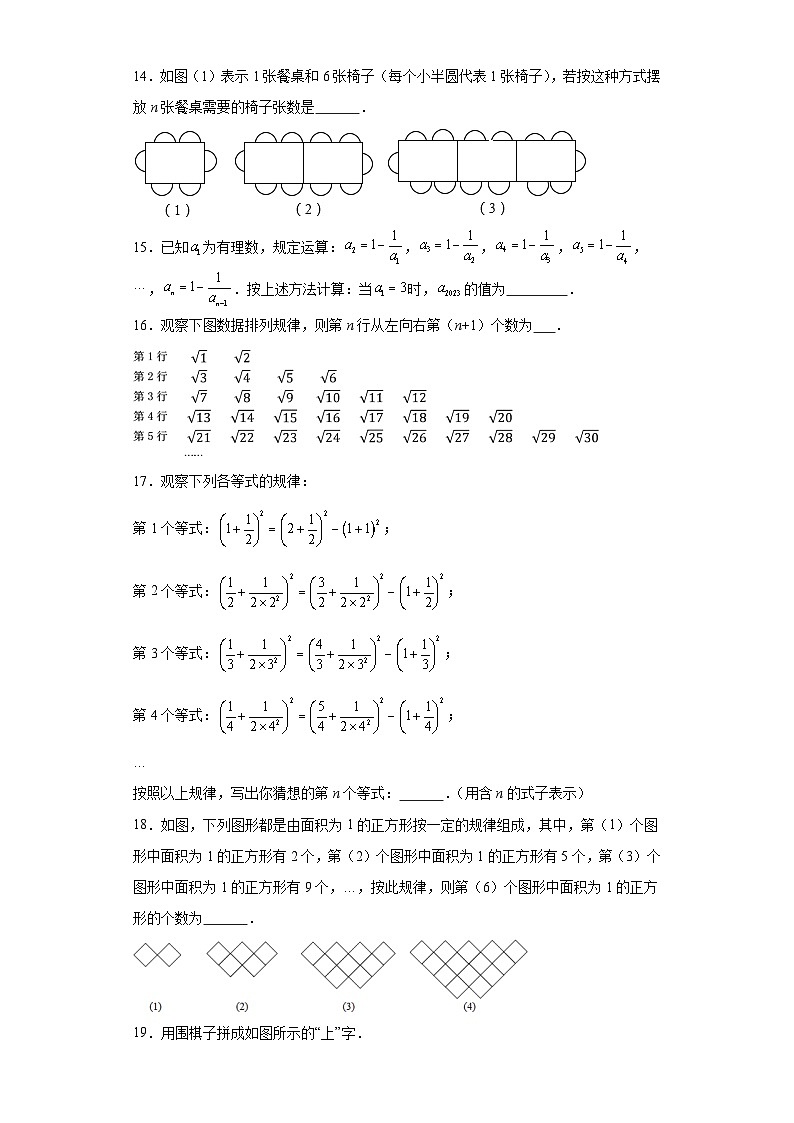 14．如图（1）表示1张餐桌和6张椅子（每个小半圆代表1张椅子），若按这种方式摆
放n张餐桌需要的椅子张数是______．
（1） （2） （3）
15．已知a₁为有理数，规定运算：a₂ = 1 − 1/a₁，a₃ = 1 − 1/a₂，a₄ = 1 − 1/a₃，a₅ = 1 − 1/a₄，
…，aₙ = 1 − 1/aₙ₋₁．按上述方法计算：当a₁ = 3时，a₂₀₂₃的值为________．
16．观察下图数据排列规律，则第n行从左向右第（n+1）个数为___．
第1行 √1 √2
第2行 √3 √4 √5 √6
第3行 √7 √8 √9 √10 √11 √12
第4行 √13 √14 √15 √16 √17 √18 √19 √20
第5行 √21 √22 √23 √24 √25 √26 √27 √28 √29 √30
……
17．观察下列各等式的规律：
第1个等式：(1 + 1/2)² = (2 + 1/2)² − (1+1)²；
第2个等式：(1/2 + 1/(2×2²))² = (3/2 + 1/(2×2²))² − (1 + 1/2)²；
第3个等式：(1/3 + 1/(2×3²))² = (4/3 + 1/(2×3²))² − (1 + 1/3)²；
第4个等式：(1/4 + 1/(2×4²))² = (5/4 + 1/(2×4²))² − (1 + 1/4)²；
…
按照以上规律，写出你猜想的第n个等式：______．（用含n的式子表示）
18．如图，下列图形都是由面积为1的正方形按一定的规律组成，其中，第（1）个图
形中面积为1的正方形有2个，第（2）个图形中面积为1的正方形有5个，第（3）个
图形中面积为1的正方形有9个，…，按此规律，则第（6）个图形中面积为1的正方
形的个数为______．
(1) (2) (3) (4)
19．用围棋子拼成如图所示的“上”字．